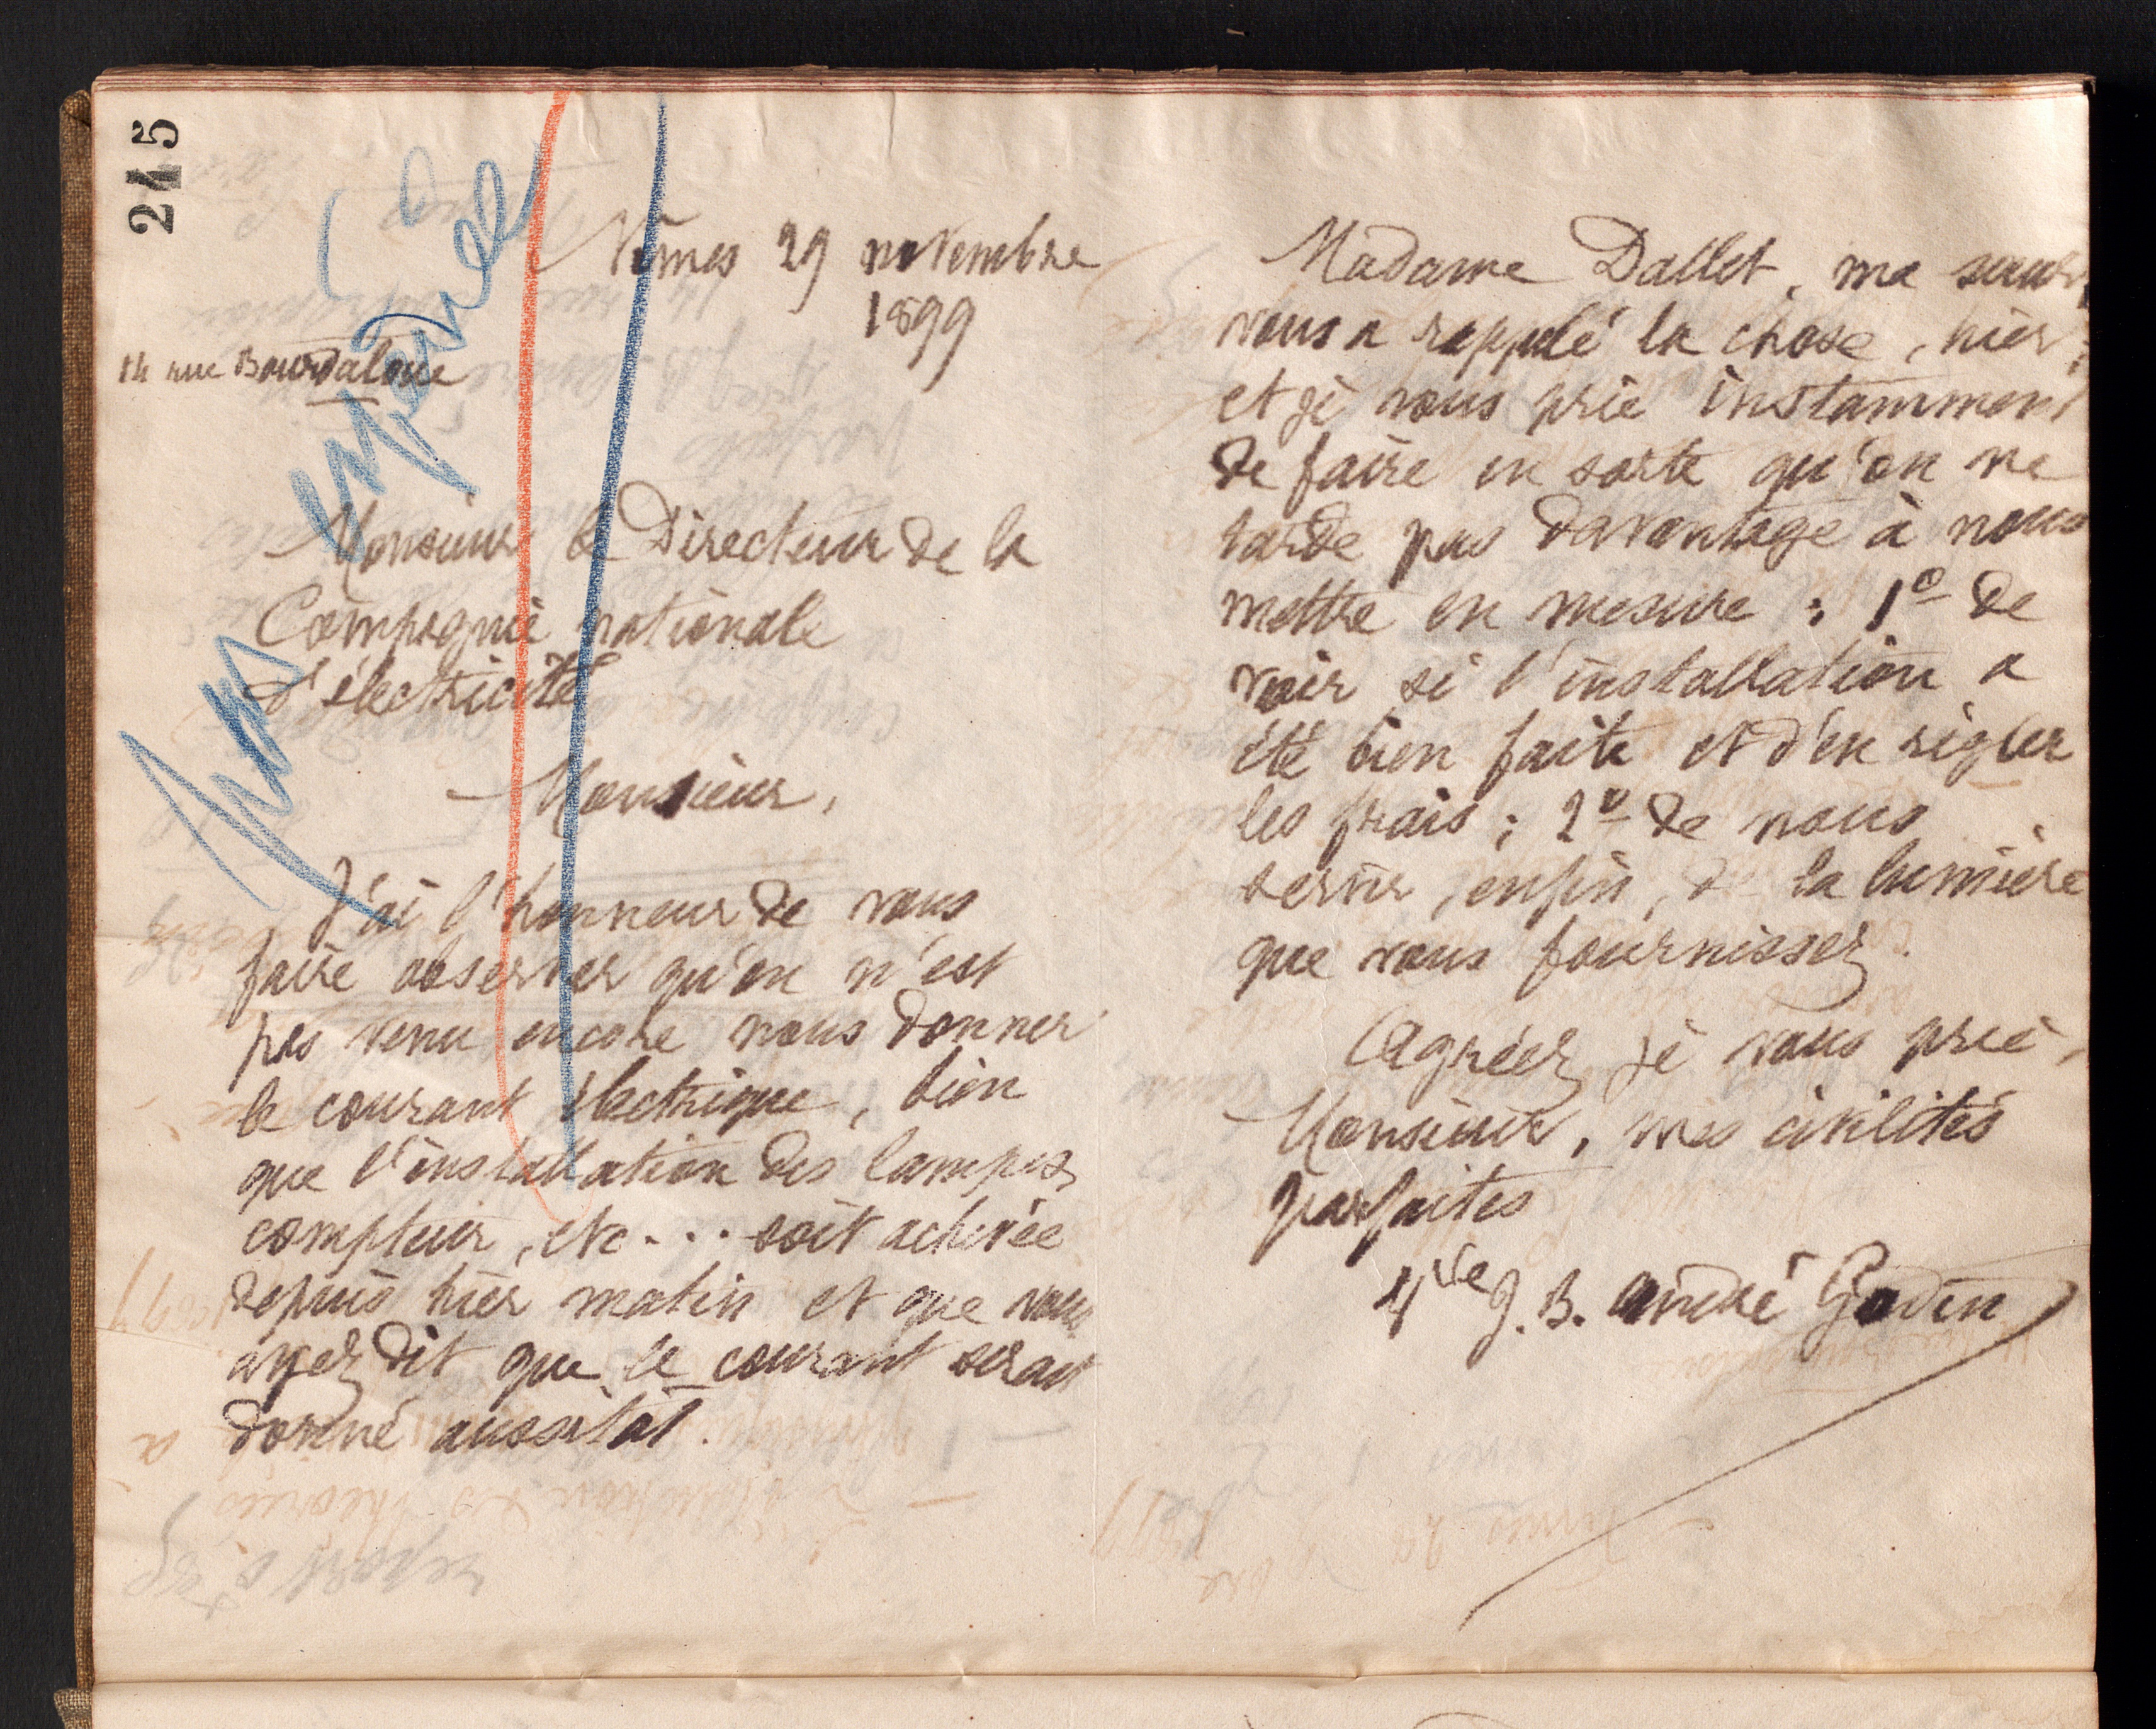 245
Nîmes 29 novembre
1899
14 rue Bourdaloue
Non expédiée
Monsieur le Directeur de la
Compagnie nationale
d'électricité
Monsieur,
J'ai l'honneur de vous
faire observer qu'on n'est
pas venu encore nous donner
le courant électrique, bien
que l'installation des lampes,
compteur, etc... soit achevée
depuis hier matin et que vous
ayez dit que le courant serait
donné aussitôt.
Madame Dallet, ma sœur,
vous a rappelé la chose, hier,
et je vous prie instamment
de faire en sorte qu'on ne
tarde pas davantage à nous
mettre en mesure : 1º de
voir si l'installation a
été bien faite et d'en régler
les frais ; 2º de nous
servir, enfin, de la lumière
que vous fournissez.
Agréez, je vous prie,
Monsieur, mes civilités
parfaites
Vve J. B. André Godin